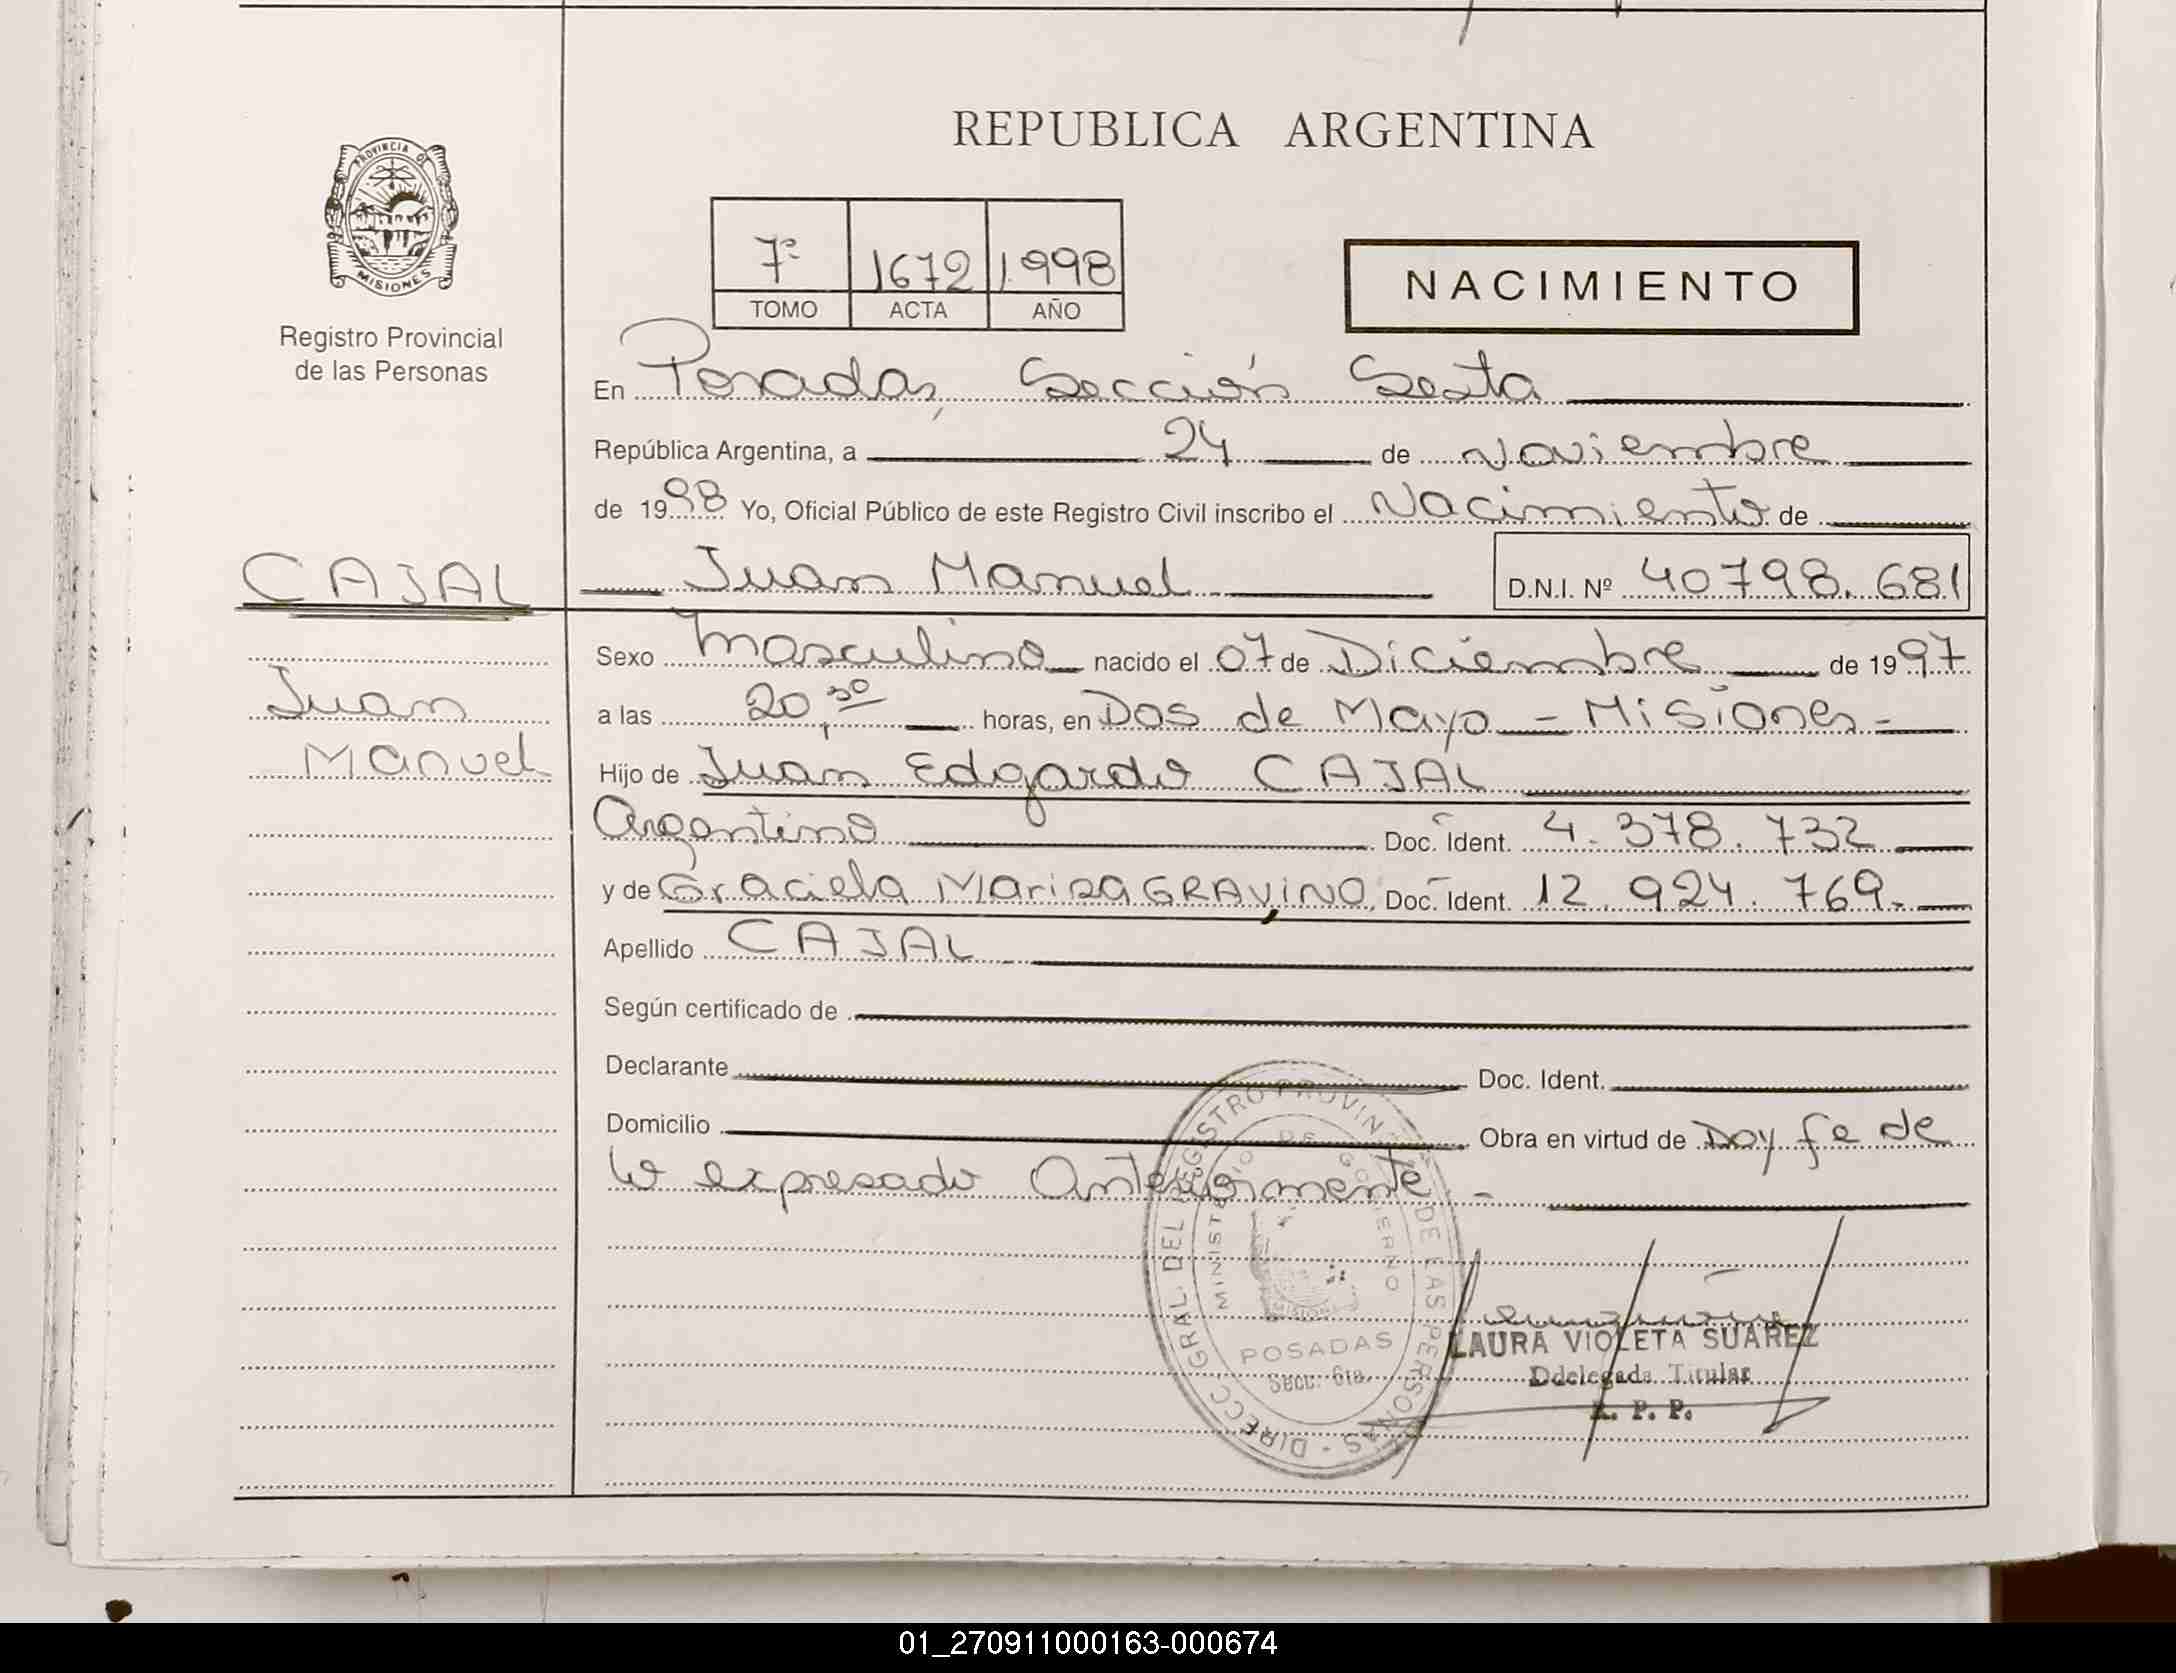 REPUBLICA ARGENTINA
PROVINCIA DE
MISIONES
Registro Provincial
de las Personas
7º 1672 1.998
TOMO ACTA AÑO
NACIMIENTO
En Posadas, Sección Sexta
República Argentina, a 24 de Noviembre
de 1998 Yo, Oficial Público de este Registro Civil inscribo el Nacimiento de
CAJAL
Juan Manuel D.N.I. Nº 40798.681
Juan
Manuel
Sexo Masculino nacido el 07 de Diciembre de 1997
a las 20,30 horas, en Dos de Mayo - Misiones-
Hijo de Juan Edgardo CAJAL
Argentino Doc. Ident. 4.378.732
y de Graciela Marisa GRAVINO, Doc. Ident. 12.924.769.-
Apellido CAJAL
Según certificado de
Declarante Doc. Ident.
Domicilio Obra en virtud de Doy fe de
lo expresado Anteriormente -
DIRECC. GRAL. DEL REGISTRO PROVINCIAL DE LAS PERSONAS -
MINISTERIO DE GOBIERNO
MISIONES
POSADAS
Secc. 6ta.
LAURA VIOLETA SUAREZ
Ddelegada Titular
R. P. P.
01_270911000163-000674